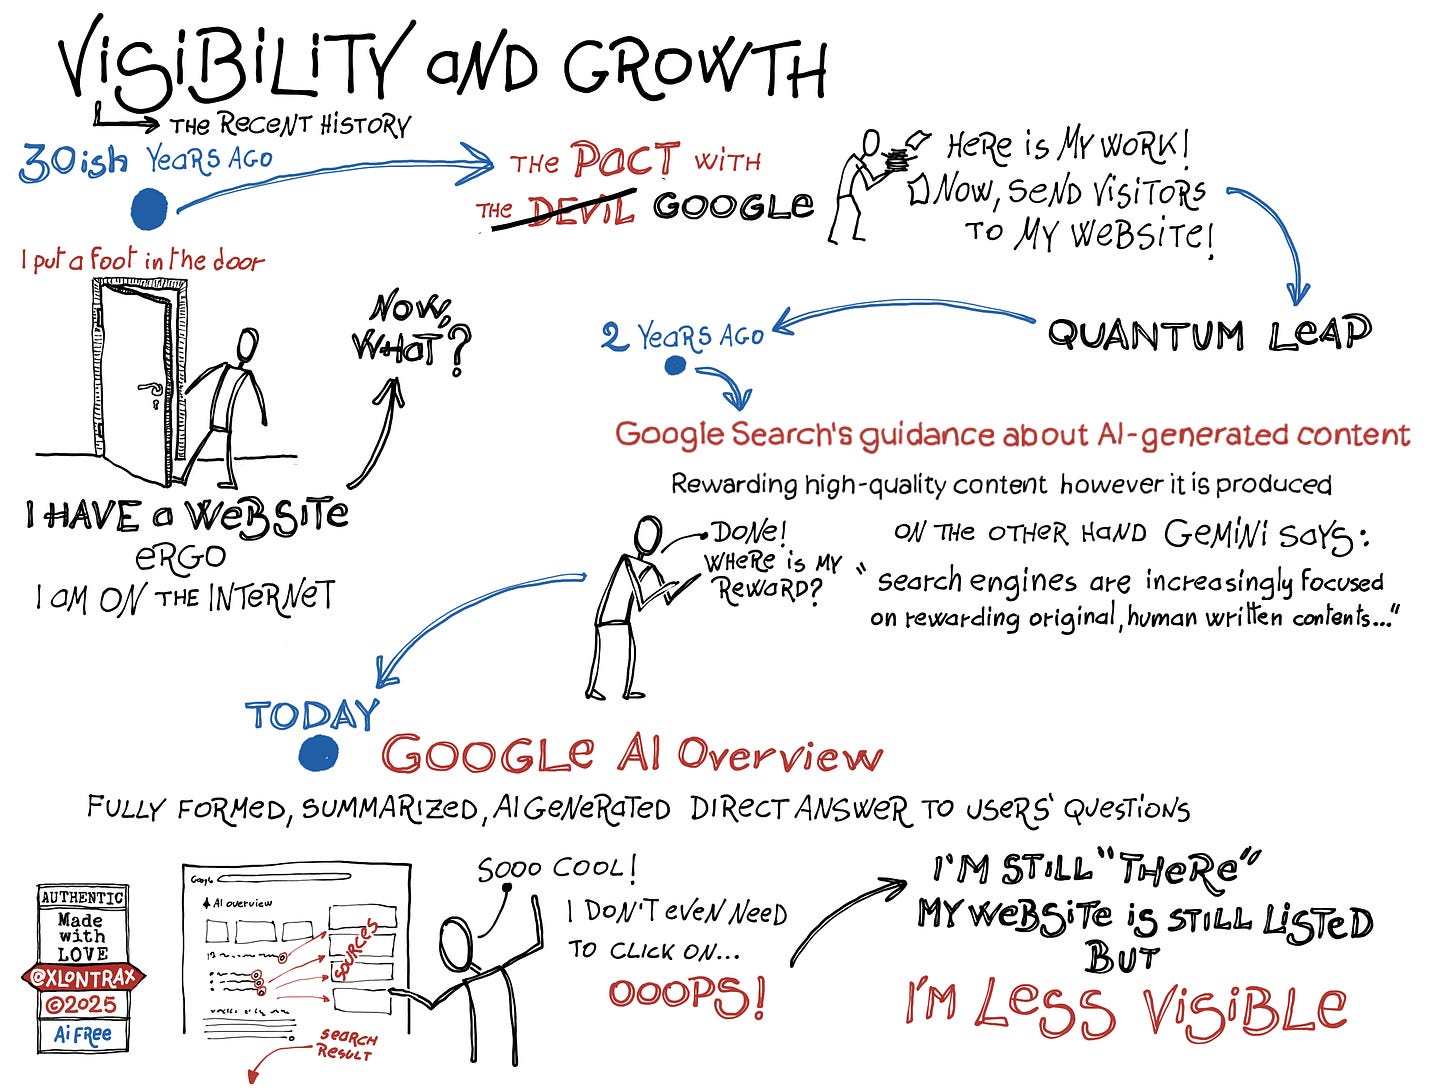 VISIBILITY AND GROWTH
THE RECENT HISTORY
30ish YEARS AGO
THE PACT WITH
THE DEVIL GOOGLE
HERE is MY WORK!
NOW, SEND VISITORS
TO MY WEBSITE!
I put a foot in the door
NOW,
WHAT?
QUANTUM LEAP
2 YEARS AGO
Google Search's guidance about AI-generated content
Rewarding high-quality content however it is produced
I HAVE a WEBSITE
ERGO
I AM ON THE INTERNET
DONE!
WHERE is MY
REWARD?
ON THE OTHER HAND GEMINI SAYS:
"search engines are increasingly focused
on rewarding original, human written contents..."
TODAY
GOOGLE AI Overview
FULLY FORMED, SUMMARIZED, AI GENERATED DIRECT ANSWER TO USERS' QUESTIONS
AUTHENTIC
Made
with
LOVE
@XLONTRAX
©2025
Ai FREE
Google
AI overview
SOURCES
SEARCH
RESULT
SOOO COOL!
I DON'T EVEN NEED
TO CLICK ON...
OOOPS!
I'M STILL "THERE"
MY WEBSITE is STILL LISTED
BUT
I'M LESS VISIBLE